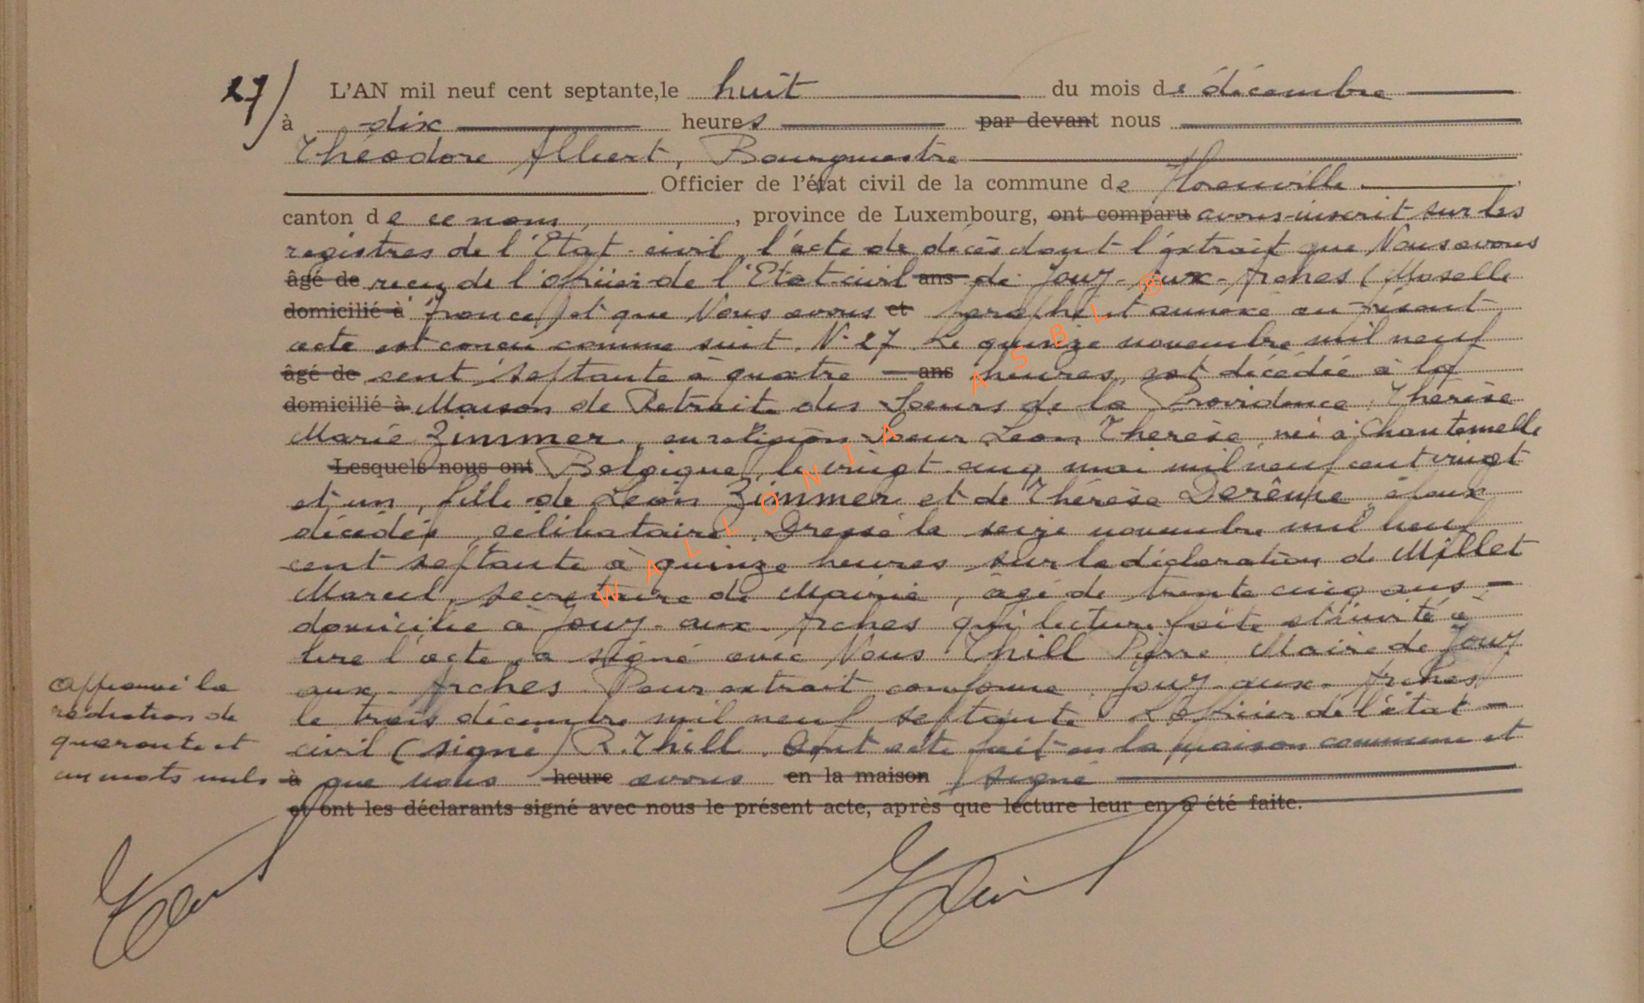 27/ L'AN mil neuf cent septante, le huit du mois de décembre
à dix heures par devant nous
Théodore Albert, Bourgmestre
Officier de l'état civil de la commune de Florenville
canton de ce nom, , province de Luxembourg, ont comparu avons inscrit sur les
registres de l'Etat-civil, l'acte de décès dont l'extrait que Nous avons
âgé de reçu de l'officier de l'Etat-civil ans de Jouy-aux-Arches (Moselle
domicilié à France) et que Nous avons et paraphé et annexé au présent
acte est conçu comme suit. N° 27. Le quinze novembre mil neuf
âgé de cent septante à quatre ans heures, est décédée à la
domicilié à Maison de Retraite des Soeurs de la Providence, Thérèse
Marie Zimmer, en religion Soeur Léon Thérèse, née à Chantemelle
Lesquels nous ont Belgique, le vingt cinq mai mil neuf cent vingt
et un, fille de Léon Zimmer et de Thérèse, époux
décédés, célibataire. Dressé le seize novembre mil neuf
cent septante à quinze heures sur la déclaration de Millet
Marcel, secrétaire de Mairie, âgé de trente cinq ans -
domicilié à Jouy-aux-Arches qui lecture faite et invité à
lire l'acte, a signé avec Nous Thill Pierre Maire de Jouy
aux-Arches. Pour extrait conforme. Jouy-aux-Arches
le trois décembre mil neuf septante. L'officier de l'état -
civil (signé) R. Thill. Dont acte fait en la maison commune et
à que nous heure avons en la maison signé
et ont les déclarants signé avec nous le présent acte, après que lecture leur en a été faite.
Approuvé la
radiation de
quarante et
un mots nuls
WALLONIA ASBL ©